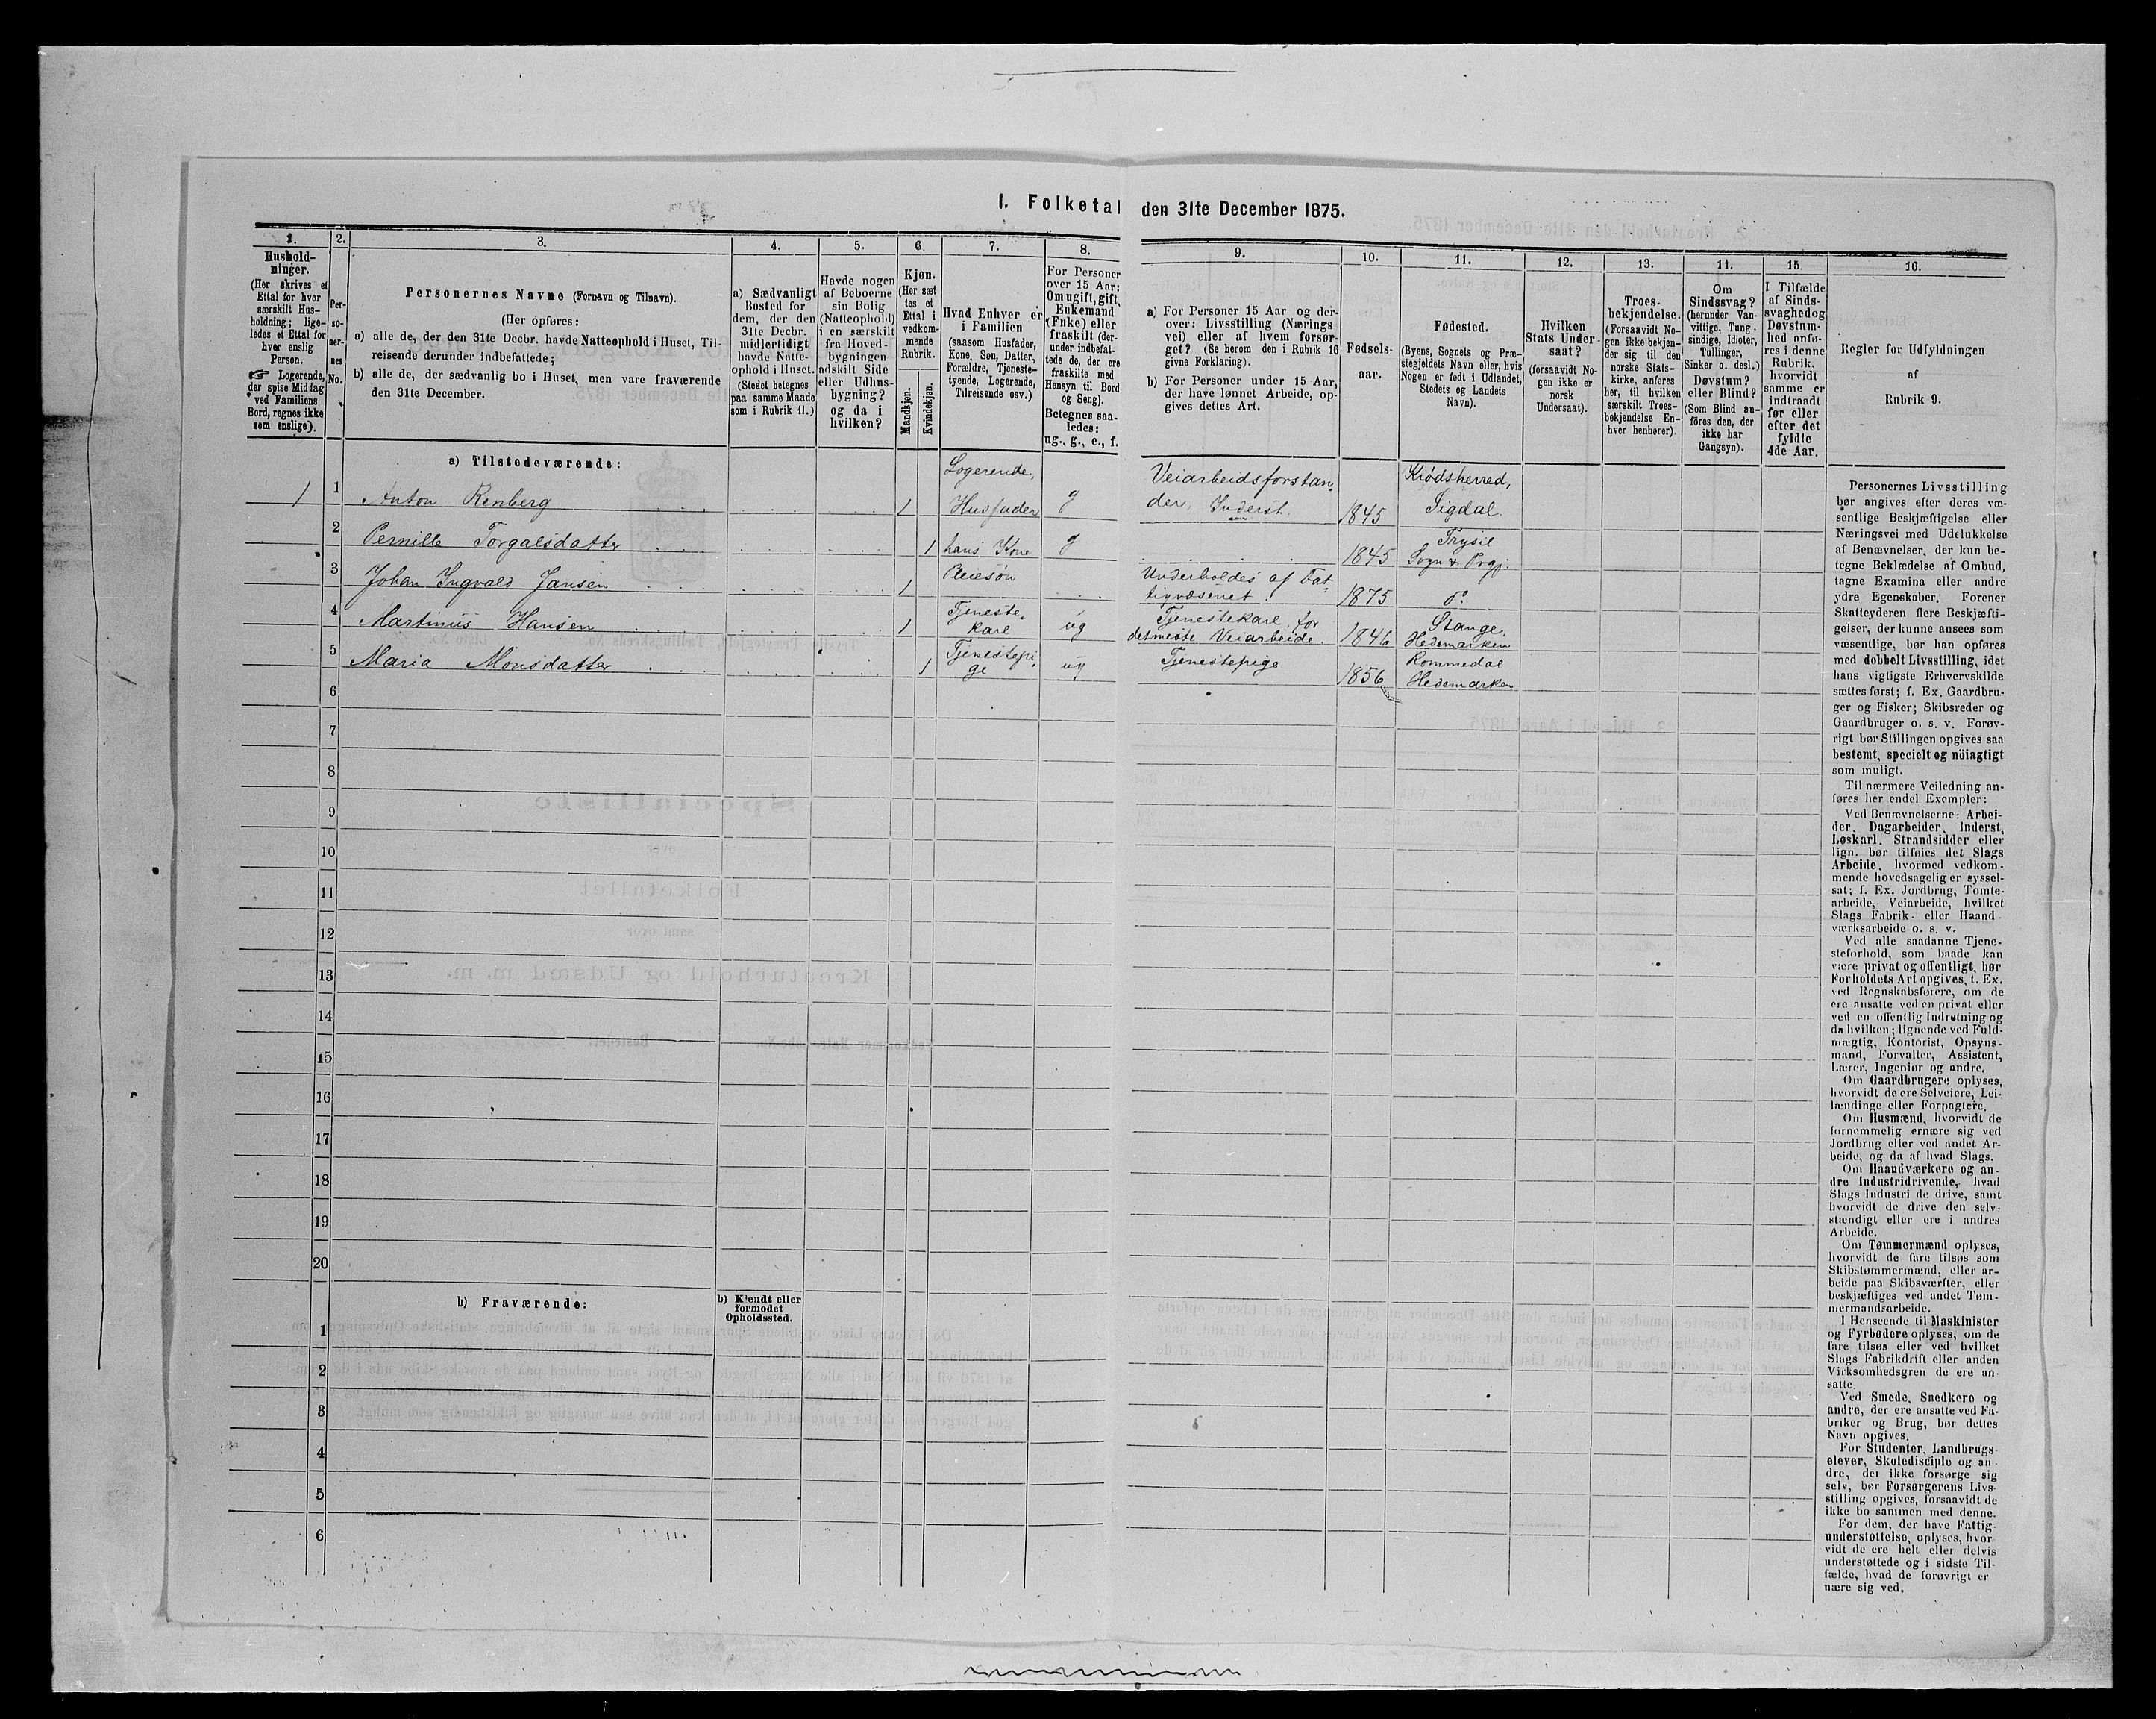 I. Folketal den 31te December 1875.
1. 2. 3. 4. 5. 6. 7. 8. 9. 10. 11. 12. 13. 14. 15. 16.
Hushold-
ninger.
(Her skrives et
Ettal for hver
særskilt Hus-
holdning; lige-
ledes et Ettal for
hver enslig
Person.
☞ Logerende,
der spise Middag
ved Familiens
Bord, regnes ikke
som enslige).
Per-
so-
ner-
nes
No.
Personernes Navne (Fornavn og Tilnavn).
(Her opføres:
a) alle de, der den 31te Decbr. havde Natteophold i Huset, Til-
reisende derunder indbefattede;
b) alle de, der sædvanlig bo i Huset, men vare fraværende
den 31te December.
a) Sædvanligt
Bosted for
dem, der den
31te Decbr.
midlertidigt
havde Natte-
ophold i Huset.
(Stedet betegnes
paa samme Maade
som i Rubrik 11.)
Havde nogen
af Beboerne
sin Bolig
(Natteophold)
i en særskilt
fra Hoved-
bygningen
adskilt Side
eller Udhus-
bygning?
og da i
hvilken?
Kjøn.
(Her sæt
tes et
Ettal i
vedkom-
mende
Rubrik.
Mandkjøn.
Kvindekjøn.
Hvad Enhver er
i Familien
(saasom Husfader,
Kone, Søn, Datter,
Forældre, Tjeneste-
tyende, Logerende,
Tilreisende osv.)
For Personer
over 15 Aar:
Om ugift, gift,
Enkemand
(Enke) eller
fraskilt (der-
under indbefat-
tede de, der ere
fraskilte med
Hensyn til Bord
og Seng).
Betegnes saa-
ledes:
ug., g., e., f.
a) For Personer 15 Aar og der-
over: Livsstilling (Nærings
vei) eller af hvem forsør-
get? (Se herom den i Rubrik 16
givne Forklaring).
b) For Personer under 15 Aar,
der have lønnet Arbeide, op-
gives dettes Art.
Fødsels-
aar.
Fødested.
(Byens, Sognets og Præ-
stegjeldets Navn eller, hvis
Nogen er født i Udlandet,
Stedets og Landets
Navn).
Hvilken
Stats Under-
saat?
(forsaavidt No-
gen ikke er
norsk
Undersaat).
Troes-
bekjendelse.
(Forsaavidt No-
gen ikke bekjen-
der sig til den
norske Stats-
kirke, anføres
her, til hvilken
særskilt Troes-
bekjendelse En-
hver henhører).
Om
Sindssvag?
(herunder Van-
vittige, Tung-
sindige, Idioter,
Tullinger,
Sinker o. desl.)
Døvstum?
eller Blind?
(Som Blind an-
føres den, der
ikke har
Gangsyn).
I Tilfælde
af Sinds-
svaghed og
Døvstum-
hed anfø-
res i denne
Rubrik,
hvorvidt
samme er
indtraadt
før eller
efter det
fyldte
4de Aar.
Regler for Udfyldningen
af
Rubrik 9.
a) Tilstedeværende:
1 1 Anton Renberg 1 Logerende, Husfader g Veiarbeidsforstan- der, Inderst. 1845 Krødsherred, Sigdal.
2 Pernille Torgalsdatter 1 hans Kone g 1845 Trysil Sogn & Prgj.
3 Johan Ingvald Jansen 1 Pleiesøn Underholdes af Fat- tigvæsenet. 1875 do
4 Martinus Hansen 1 Tjeneste- karl ug Tjenestekarl, for detmeste Veiarbeide. 1846 Stange, Hedemarken
5 Maria Monsdatter 1 Tjenestepi- ge ug Tjenestepige 1856 Rommedal Hedemarken
6
7
8
9
10
11
12
13
14
15
16
17
18
19
20
b) Fraværende:
b) Kjendt eller
formodet
Opholdssted.
1
2
3
4
5
6
Personernes Livsstilling
bør angives efter deres væ-
sentlige Beskjæftigelse eller
Næringsvei med Udelukkelse
af Benævnelser, der kun be-
tegne Beklædelse af Ombud,
tagne Examina eller andre
ydre Egenskaber. Forener
Skatteyderen flere Beskjæfti-
gelser, der kunne ansees som
væsentlige, bør han opføres
med dobbelt Livsstilling, idet
hans vigtigste Erhvervskilde
sættes først; f. Ex. Gaardbru-
ger og Fisker; Skibsreder og
Gaardbruger o. s. v. Forøv-
rigt bør Stillingen opgives saa
bestemt, specielt og nöiagtigt
som muligt.
Til nærmere Veiledning an-
føres her endel Exempler:
Ved Benævnelserne: Arbei-
der, Dagarbeider, Inderst,
Løskarl, Strandsidder eller
lign. bør tilføies det Slags
Arbeide, hvormed vedkom-
mende hovedsagelig er syssel-
sat; f. Ex. Jordbrug, Tomte-
arbeide, Veiarbeide, hvilket
Slags Fabrik- eller Haand-
værksarbeide o. s. v.
Ved alle saadanne Tjene-
steforhold, som baade kan
være privat og offentligt, bør
Forholdets Art opgives, f. Ex.
ved Regnskabsførere, om de
ere ansatte ved en privat eller
ved en offentlig Indretning og
da hvilken; lignende ved Fuld-
mægtig, Kontorist, Opsyns-
mand, Forvalter, Assistent,
Lærer, Ingeniør og andre.
Om Gaardbrugere oplyses,
hvorvidt de ere Selveiere, Lei-
lændinge eller Forpagtere.
Om Husmænd, hvorvidt de
fornemmelig ernære sig ved
Jordbrug eller ved andet Ar-
beide, og da af hvad Slags.
Om Haandværkere og an-
dre Industridrivende, hvad
Slags Industri de drive, samt
hvorvidt de drive den selv-
stændigt eller ere i andres
Arbeide.
Om Tømmermænd oplyses,
hvorvidt de fare tilsøs som
Skibstømmermænd, eller ar-
beide paa Skibsværfter, eller
beskjæftiges ved andet Tøm-
mermandsarbeide.
I Henseende til Maskinister
og Fyrbødere oplyses, om de
fare tilsøs eller ved hvilket
Slags Fabrikdrift eller anden
Virksomhedsgren de ere an-
satte.
Ved Smede, Snedkere og
andre, der ere ansatte ved Fa-
briker og Brug, bør dettes
Navn opgives.
For Studenter, Landbrugs-
elever, Skoledisciple og an-
dre, der ikke forsørge sig
selv, bør Forsørgerens Livs-
stilling opgives, forsaavidt de
ikke bo sammen med denne.
For dem, der have Fattig-
understøttelse, oplyses, hvor-
vidt de ere helt eller delvis
understøttede og i sidste Til-
fælde, hvad de forøvrigt er-
nære sig ved.